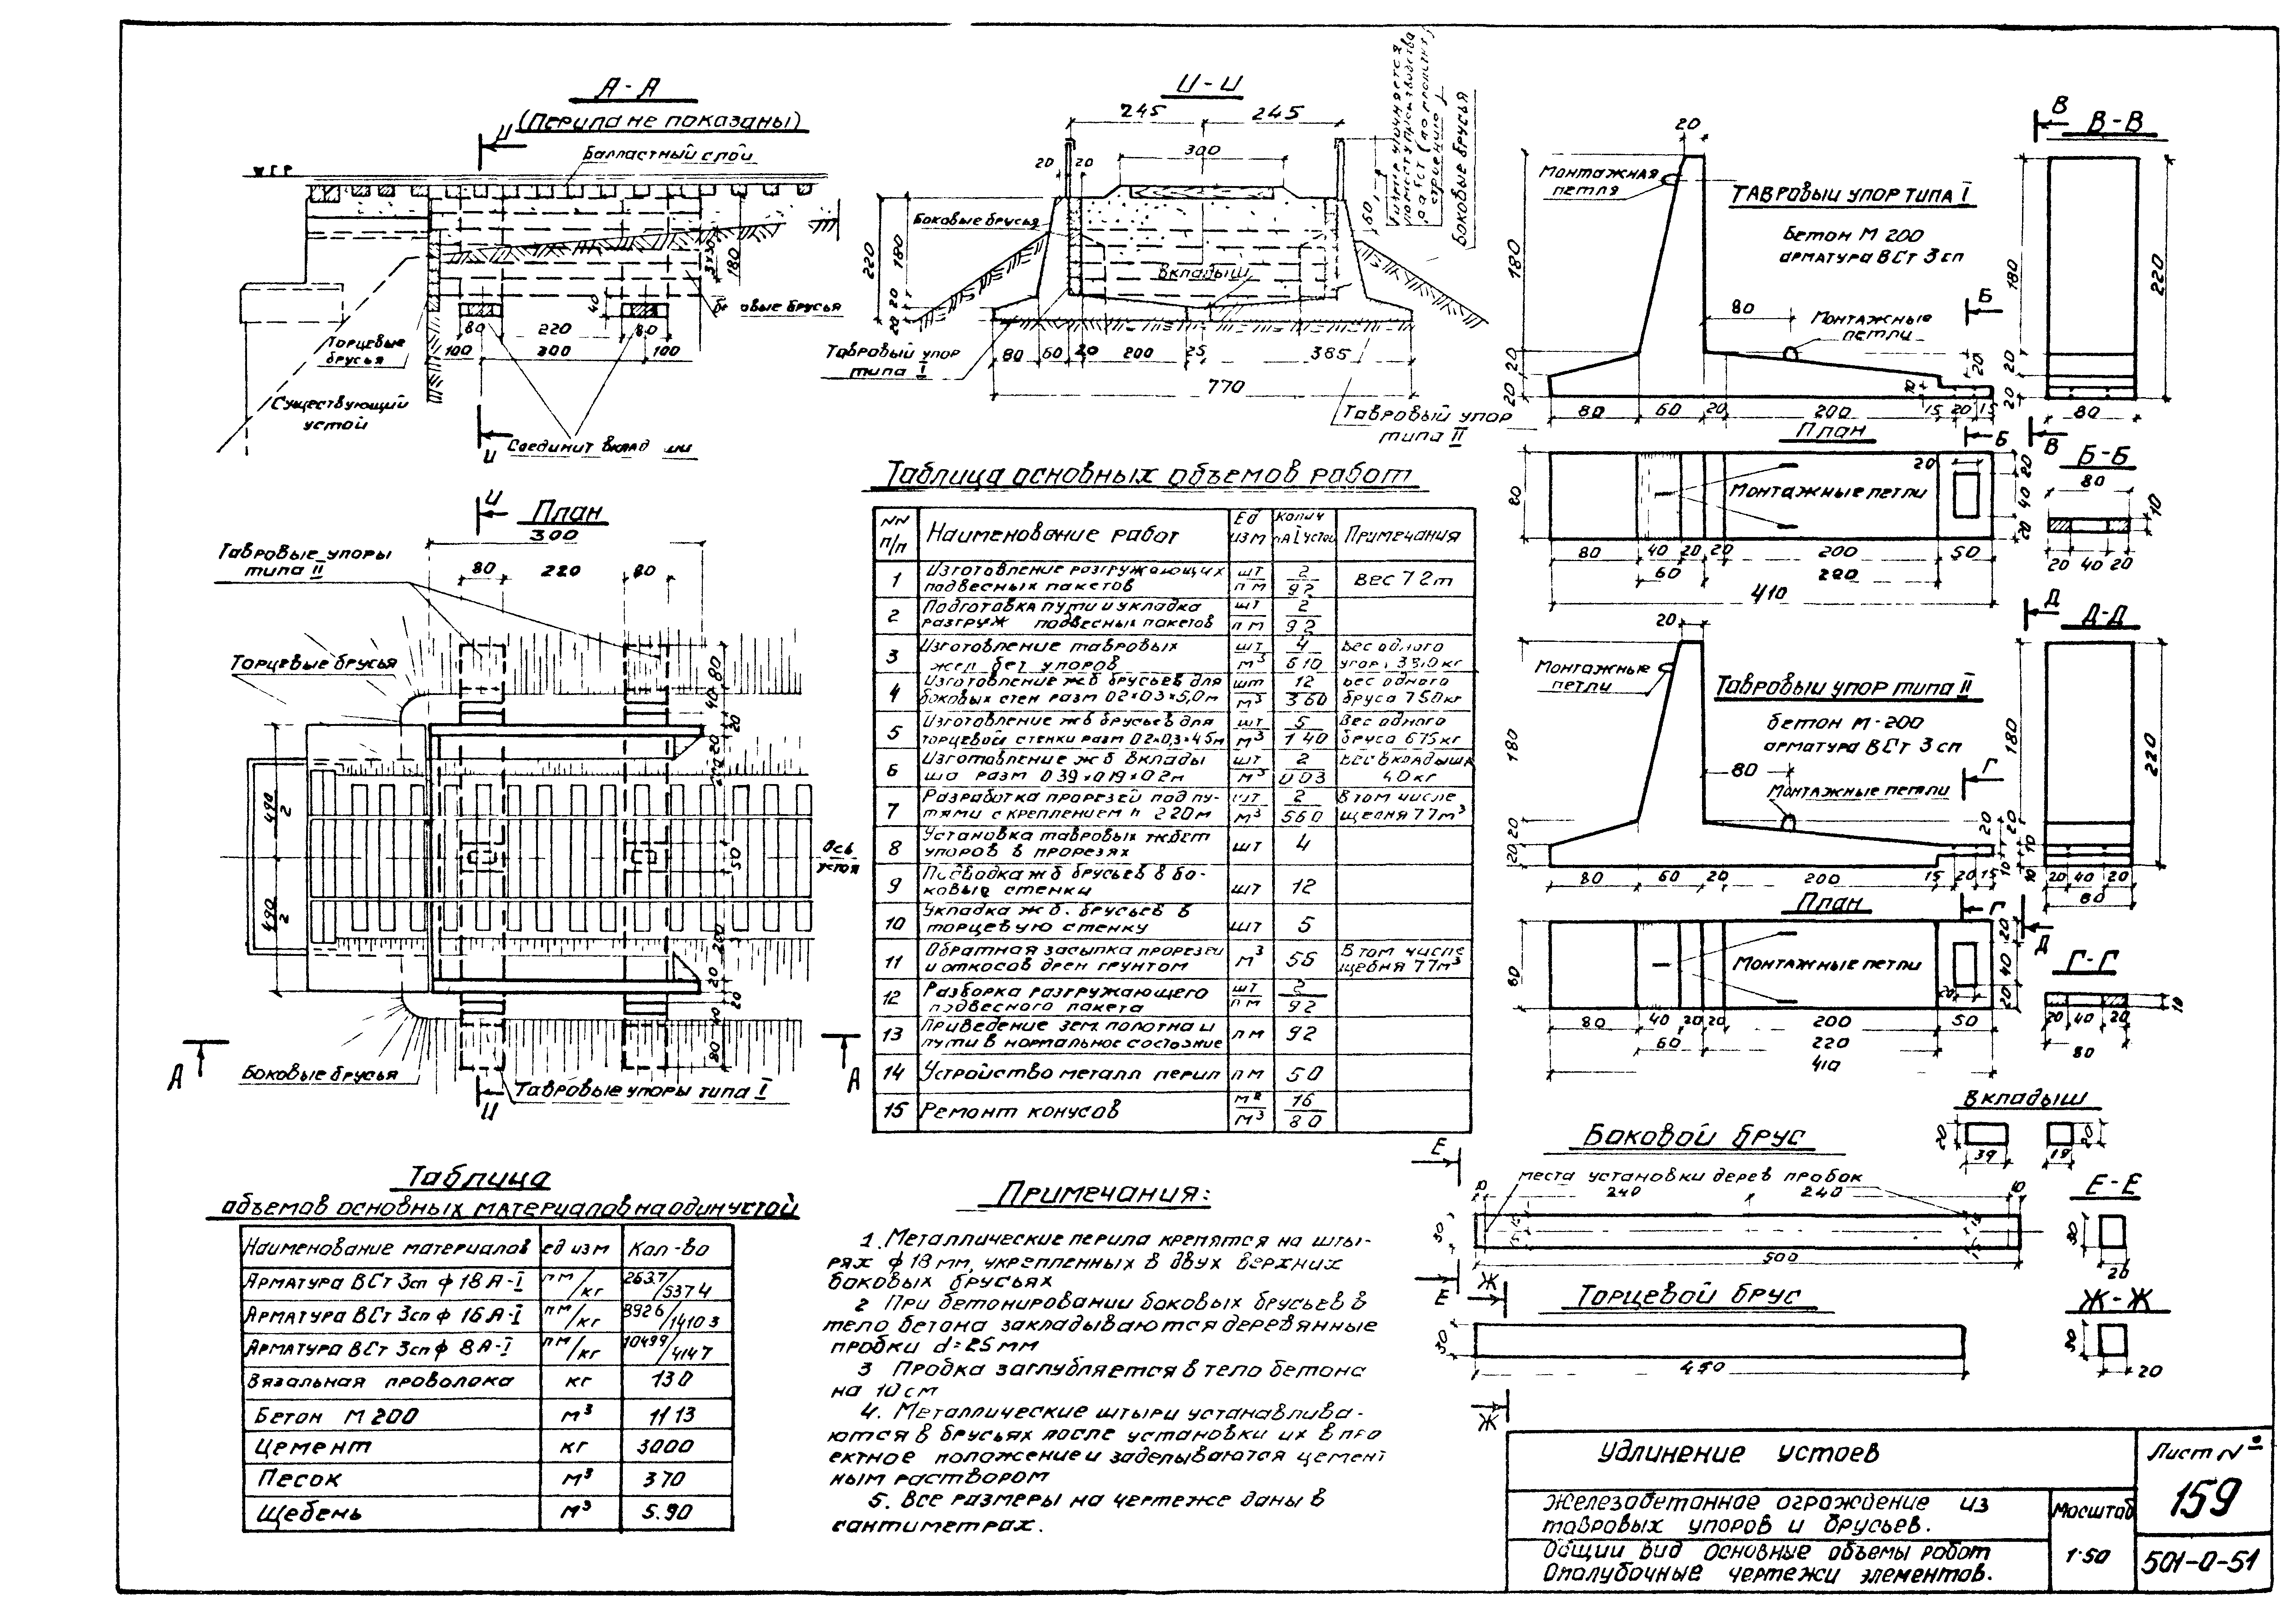 А-А
(Перила не показаны)
Балластный слой
80 220 80
100 300 100
180
40
Торцевые
брусья
Существующий
устой
II-II
245 245
300
20 20
Боковые брусья
Вкладыш
220
180
20
20
60
Боковые брусья
Тавровый упор
типа I
80 60 20 200 25 385
770
Тавровый упор
типа II
20
Монтажная
петля
ТАВРОВЫЙ УПОР ТИПА I
Бетон М 200
арматура ВСт 3сп
80
Монтажные
петли
180
20
20
80 60 20 200 15 20 15
План
80
Монтажные петли
80 40 20 20 200 50
60 220
410
20
20
40
20
В
В-В
180
220
20
20
80
Б
Б
В
Б-Б
80
10
20 40 20
20
Монтажные
петли
Тавровый упор типа II
бетон М-200
арматура ВСт 3сп
80
Монтажные петли
180
20
20
80 60 20 200 15 20 15
План
80
Монтажные петли
80 40 20 20 200 50
60 220
410
Д
Д-Д
180
220
20 40 20
80
Г
Г
Д
Г-Г
20 40 20
80
10
План
300
80 220 80
Тавровые упоры
типа II
Торцевые брусья
490/2
490/2
Ось
устоя
50
Боковые брусья
Тавровые упоры типа I
А
А
Таблица основных объемов работ
NN п/п Наименование работ Ед изм Колич на 1 устой Примечания
1 Изготовление разгружающих подвесных пакетов шт/пм 2/92 Вес 7 2т
2 Подготовка пути и укладка разгруж подвесных пакетов шт/пм 2/92
3 Изготовление тавровых жел бет упоров шт/м³ 4/6 10 Вес одного
4 Изготовление жб брусьев для боковых стен разм 0 2×0 3×5,0м шт/м³ 12/3 60 вес одного бруса 750кг
5 Изготовление жб брусьев для торцевой стенки разм 0 2×0,3×4 5м шт/м³ 5/1 40 Вес одного бруса 675кг
6 Изготовление жб вклады ша разм 0 39×0 19×0 2м шт/м³ 2/0 03 Вес вкладыша 40кг
7 Разработка прорезей под пу- тями с креплением h 2 20м шт/м³ 2/56 0 В том числе щебня 7 7м³
8 Установка тавровых жбет упоров в прорезях шт 4
9 Подводка жб брусьев в бо- ковые стенки шт 12
10 Укладка жб. брусьев в торцевую стенку шт 5
11 Обратная засыпка прорезей и откосов дрен грунтом м³ 56 В том числе щебня 7 7м³
12 Разборка разгружающего подвесного пакета шт/пм 2/92
13 Приведение зем. полотна и пути в нормальное состояние пм 92
14 Устройство металл перил пм 5 0
15 Ремонт конусов м²/м³ 16/8 0
Таблица
объемов основных материалов на один устой
Наименование материалов ед изм Кол-во
Арматура ВСт 3сп ф 18 А-I пм/кг 263.7/537 4
Арматура ВСт 3сп ф 16 А-I пм/кг 892 6/1410 3
Арматура ВСт 3сп ф 8 А-I пм/кг 1049 9/414 7
Вязальная проволока кг 13 0
Бетон М 200 м³ 11 13
Цемент кг 3000
Песок м³ 3 70
Щебень м³ 5.90
Примечания:
1. Металлические перила крепятся на шты-
рях ф 18 мм, укрепленных в двух верхних
боковых брусьях
2 При бетонировании боковых брусьев в
тело бетона закладываются деревянные
пробки d=25 мм
3 Пробка заглубляется в тело бетона
на 10 см
4. Металлические штыри устанавлива-
ются в брусьях после установки их в про
ектное положение и заделываются цемент
ным раствором
5. Все размеры на чертеже даны в
сантиметрах.
Вкладыш
20 39 19 20
Боковой брус
Е
Е
места установки дерев пробок
10 240 240 10
30
500
Е-Е
30
20
Торцевой брус
Ж
Ж
30
450
Ж-Ж
30
20
Удлинение устоев
Лист №
159
Железобетонное ограждение из
тавровых упоров и брусьев.
Общий вид Основные объемы работ
Опалубочные чертежи элементов.
Масштаб
1:50
501-0-51